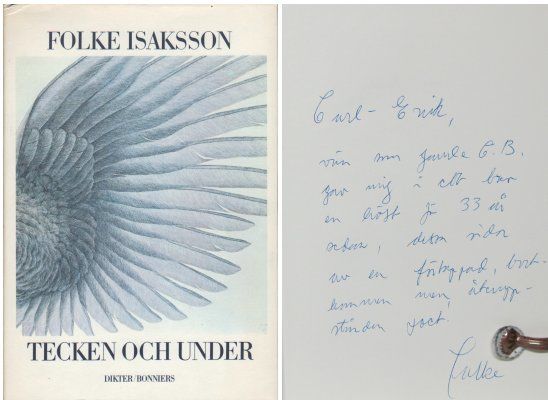 FOLKE ISAKSSON
TECKEN OCH UNDER
DIKTER/BONNIERS
Carl-Erik,
vän min gamle C.B.
gav mig i ett
en höst för 33 år
sedan, dessa sidor
av en bort-
kommen men återupp-
stånden poet.
Folke